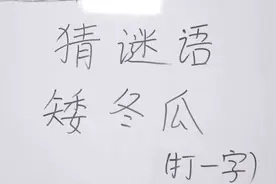 猜谜语
矮冬瓜
(打一字)